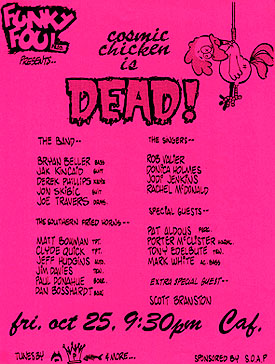 FUNKY
FOWL
PRESENTS--
cosmic
chicken
is
DEAD!
THE BAND--
BRYAN BELLER BASS
JAK KINCAID GUIT.
DEREK PHILLIPS KEYS
JON SKIBIC GUIT.
JOE TRAVERS DRMS.
THE SOUTHERN FRIED HORNS--
MATT BOWMAN TPT.
CLYDE QUICK TPT.
JEFF HUDGINS ALTO
JIM DAVIES TEN.
PAUL DONAHUE BONE
DAN BOSSHARDT BONE
THE SINGERS--
ROB VALIER
DONICA HOLMES
JODY JENKINS
RACHEL McDONALD
SPECIAL GUESTS--
PAT ALDOUS PERC.
PORTER McCLISTER HARM.
TONY EDELBUTE TEN.
MARK WHITE AC. BASS
EXTRA SPECIAL GUEST--
SCOTT BRANSTON
fri. oct 25, 9:30pm Caf.
TUNES BY & MORE...
SPONSORED BY S.O.A.P.